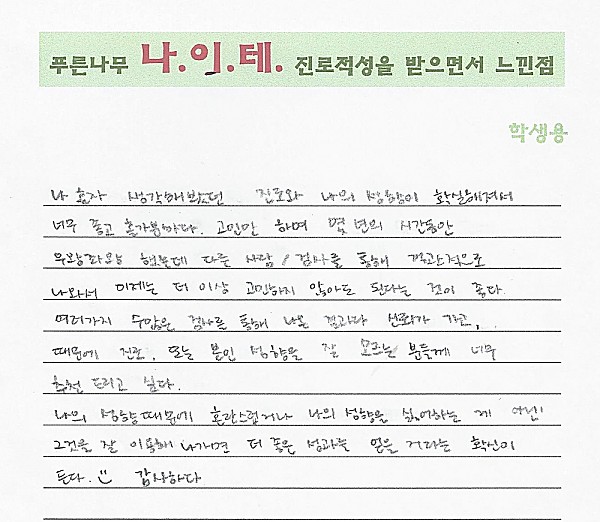 푸른나무 나.이.테. 진로적성을 받으면서 느낀점
학생용
나 혼자 생각해봤던 진로와 나의 성향이 확실해져서
너무 좋고 홀가분하다. 고민만 하며 몇 년의 시간동안
우왕좌왕 했는데 다른 사람/검사를 통해 객관적으로
나와서 이제는 더 이상 고민하지 않아도 된다는 것이 좋다.
여러가지 수많은 검사를 통해 나온 결과라 신뢰가 가고,
때문에 진로, 또는 본인 성향을 잘 모르는 분들께 너무
추천 드리고 싶다.
나의 성향때문에 혼란스럽거나 나의 성향을 싫어하는 게 아닌
그것을 잘 이용해 나가면 더 좋은 성과를 얻을 거라는 확신이
든다. 감사하다